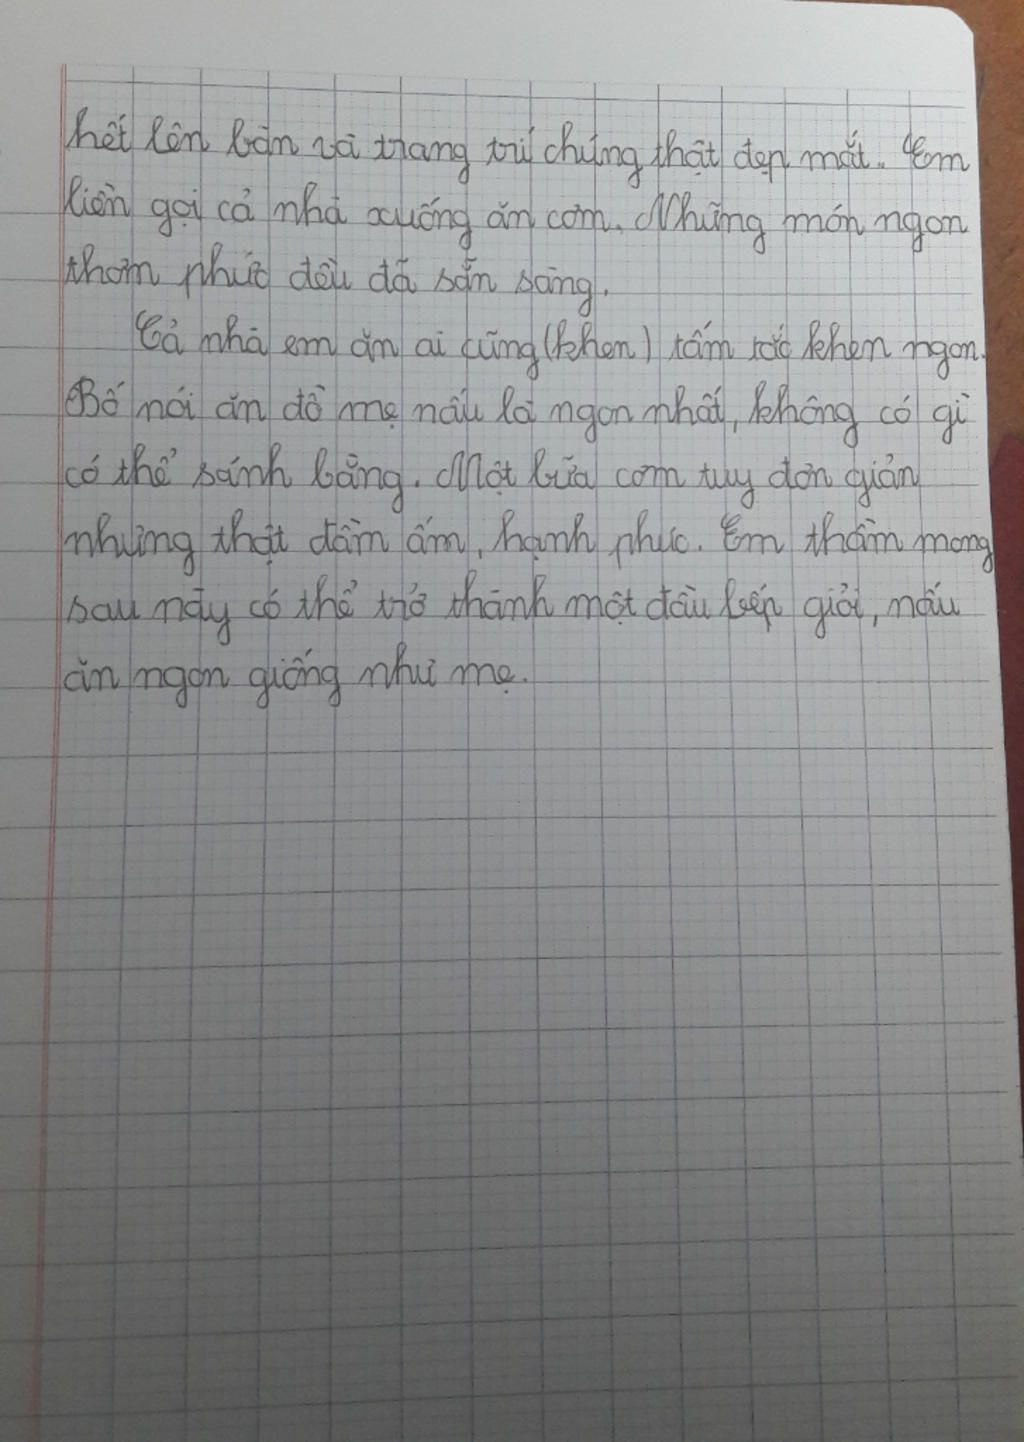 hết lên bàn và trang trí chúng thật đẹp mắt. Em
liền gọi cả nhà xuống ăn cơm. Những món ngon
thơm phức đều đã sẵn sàng.
Cả nhà em ăn ai cũng (khen) tấm tắc khen ngon.
Bố nói ăn đồ mẹ nấu là ngon nhất, không có gì
có thể sánh bằng. Một bữa cơm tuy đơn giản
nhưng thật đầm ấm, hạnh phúc. Em thầm mong
sau này có thể trở thành một đầu bếp giỏi, nấu
ăn ngon giống như mẹ.